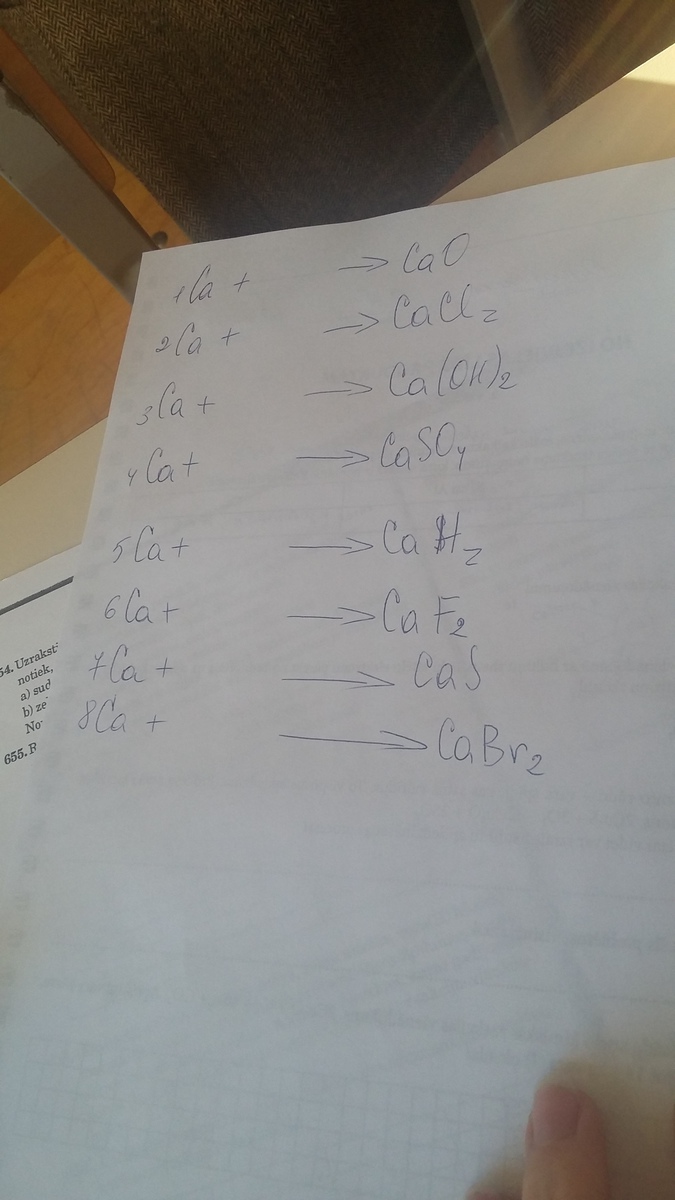 1 Ca + → CaO
2 Ca + → CaCl₂
3 Ca + → Ca(OH)₂
4 Ca + → CaSO₄
5 Ca + → CaH₂
6 Ca + → CaF₂
7 Ca + → CaS
8 Ca + → CaBr₂
54. Uzrakst
notiek,
a) sud
b) ze
No
655. R